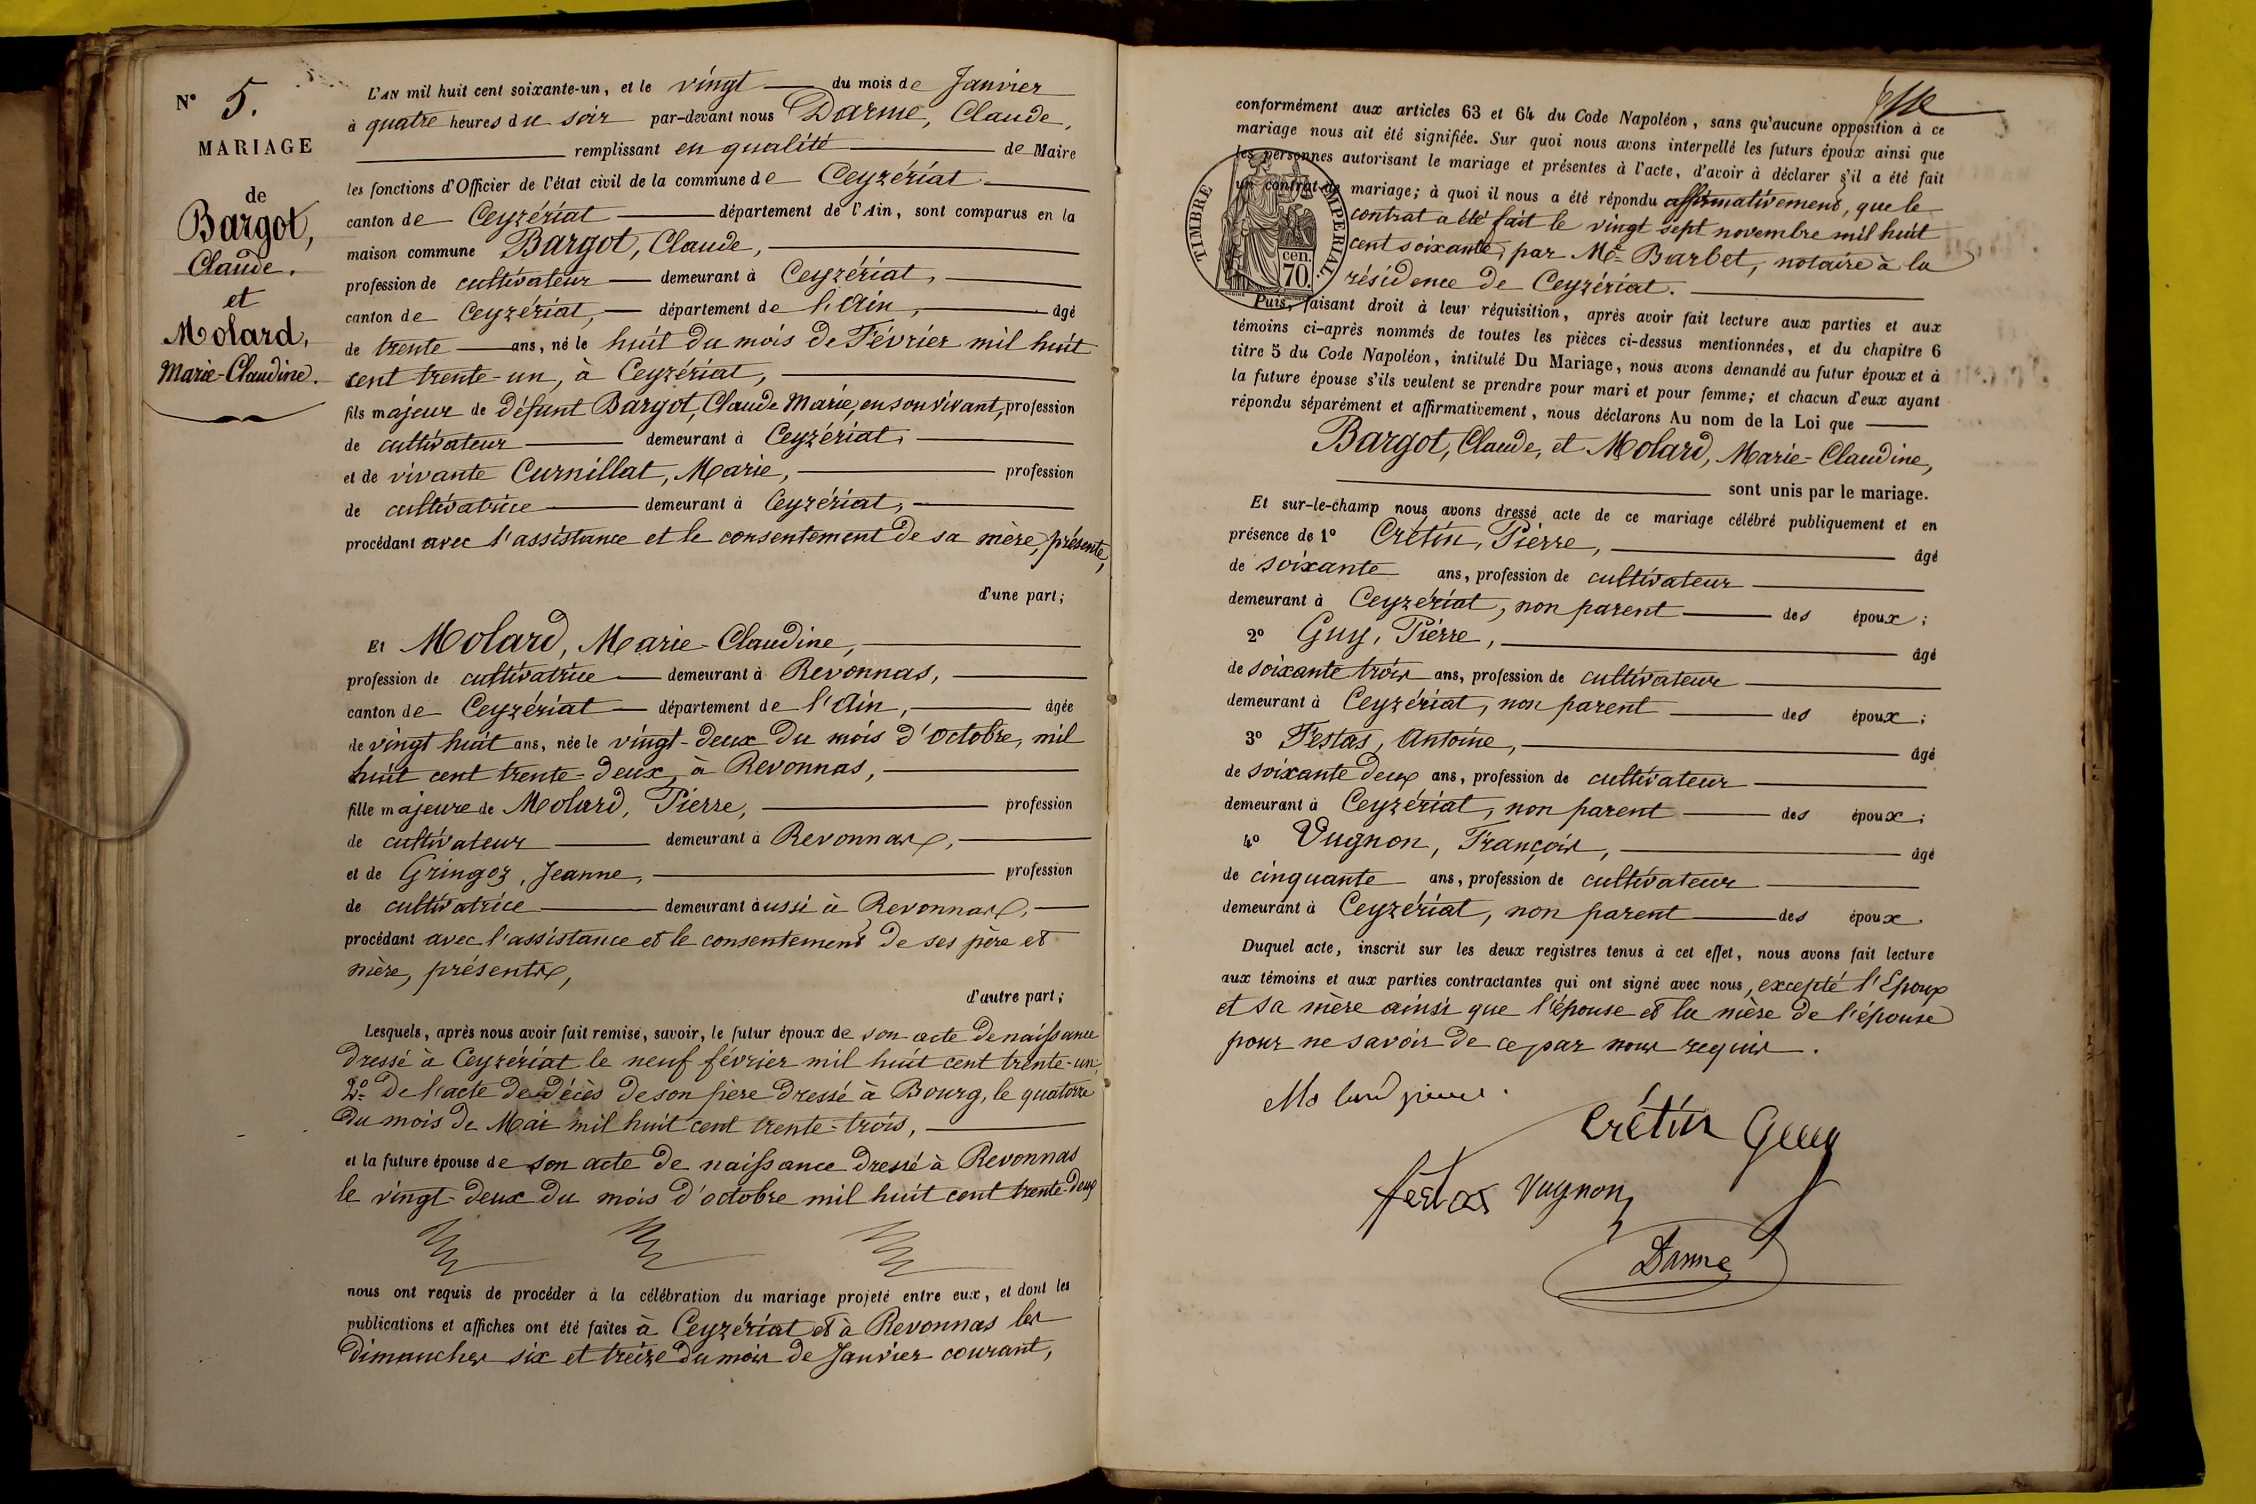 N° 5.
MARIAGE
de
Bargot,
Claude.
et
Molard,
Marie-Claudine.
L'AN mil huit cent soixante-un, et le vingt du mois de Janvier
à quatre heures du soir par-devant nous Darme, Claude,
remplissant en qualité de Maire
les fonctions d'Officier de l'état civil de la commune de Ceyzériat
canton de Ceyzériat département de l'Ain, sont comparus en la
maison commune Bargot, Claude,
profession de cultivateur demeurant à Ceyzériat,
canton de Ceyzériat, département de l'Ain, âgé
de trente ans, né le huit du mois de Février mil huit
cent trente-un, à Ceyzériat,
fils majeur de défunt Bargot, Claude Marie, en son vivant, profession
de cultivateur demeurant à Ceyzériat,
et de vivante Curnillat, Marie, profession
de cultivatrice demeurant à Ceyzériat,
procédant avec l'assistance et le consentement de sa mère, présente,
d'une part;
Et Molard, Marie-Claudine,
profession de cultivatrice demeurant à Revonnas,
canton de Ceyzériat département de l'Ain, âgée
de vingt huit ans, née le vingt-deux du mois d'octobre, mil
huit cent trente-deux, à Revonnas,
fille majeure de Molard, Pierre, profession
de cultivateur demeurant à Revonnas,
et de Gringoz, Jeanne, profession
de cultivatrice demeurant aussi à Revonnas,
procédant avec l'assistance et le consentement de ses père et
mère, présents,
d'autre part;
Lesquels, après nous avoir fait remise, savoir, le futur époux de son acte de naissance
dressé à Ceyzériat le neuf février mil huit cent trente-un;
2° De l'acte de décès de son père dressé à Bourg, le quatorze
du mois de Mai mil huit cent trente-trois,
et la future épouse de son acte de naissance dressé à Revonnas
le vingt-deux du mois d'octobre mil huit cent trente-deux
nous ont requis de procéder à la célébration du mariage projeté entre eux, et dont les
publications et affiches ont été faites à Ceyzériat et à Revonnas les
dimanches six et treize du mois de Janvier courant,
conformément aux articles 63 et 64 du Code Napoléon, sans qu'aucune opposition à ce
mariage nous ait été signifiée. Sur quoi nous avons interpellé les futurs époux ainsi que
les personnes autorisant le mariage et présentes à l'acte, d'avoir à déclarer s'il a été fait
un contrat de mariage; à quoi il nous a été répondu affirmativement, que le
contrat a été fait le vingt sept novembre mil huit
cent soixante, par Me Barbet, notaire à la
résidence de Ceyzériat.
TIMBRE IMPERIAL.
cen.
70.
Puis, faisant droit à leur réquisition, après avoir fait lecture aux parties et aux
témoins ci-après nommés de toutes les pièces ci-dessus mentionnées, et du chapitre 6
titre 5 du Code Napoléon, intitulé Du Mariage, nous avons demandé au futur époux et à
la future épouse s'ils veulent se prendre pour mari et pour femme; et chacun d'eux ayant
répondu séparément et affirmativement, nous déclarons Au nom de la Loi que
Bargot, Claude, et Molard, Marie-Claudine,
sont unis par le mariage.
Et sur-le-champ nous avons dressé acte de ce mariage célébré publiquement et en
présence de 1° Crétin, Pierre, âgé
de soixante ans, profession de cultivateur
demeurant à Ceyzériat, non parent des époux;
2° Guy, Pierre, âgé
de soixante trois ans, profession de cultivateur
demeurant à Ceyzériat, non parent des époux;
3° Festas, Antoine, âgé
de soixante deux ans, profession de cultivateur
demeurant à Ceyzériat, non parent des époux;
4° Vugnon, François, âgé
de cinquante ans, profession de cultivateur
demeurant à Ceyzériat, non parent des époux.
Duquel acte, inscrit sur les deux registres tenus à cet effet, nous avons fait lecture
aux témoins et aux parties contractantes qui ont signé avec nous, excepté l'Epoux
et sa mère ainsi que l'épouse et la mère de l'épouse
pour ne savoir de ce par nous requis.
Mo lard pierre.
Crétin Guy
festas Vugnon
Darme